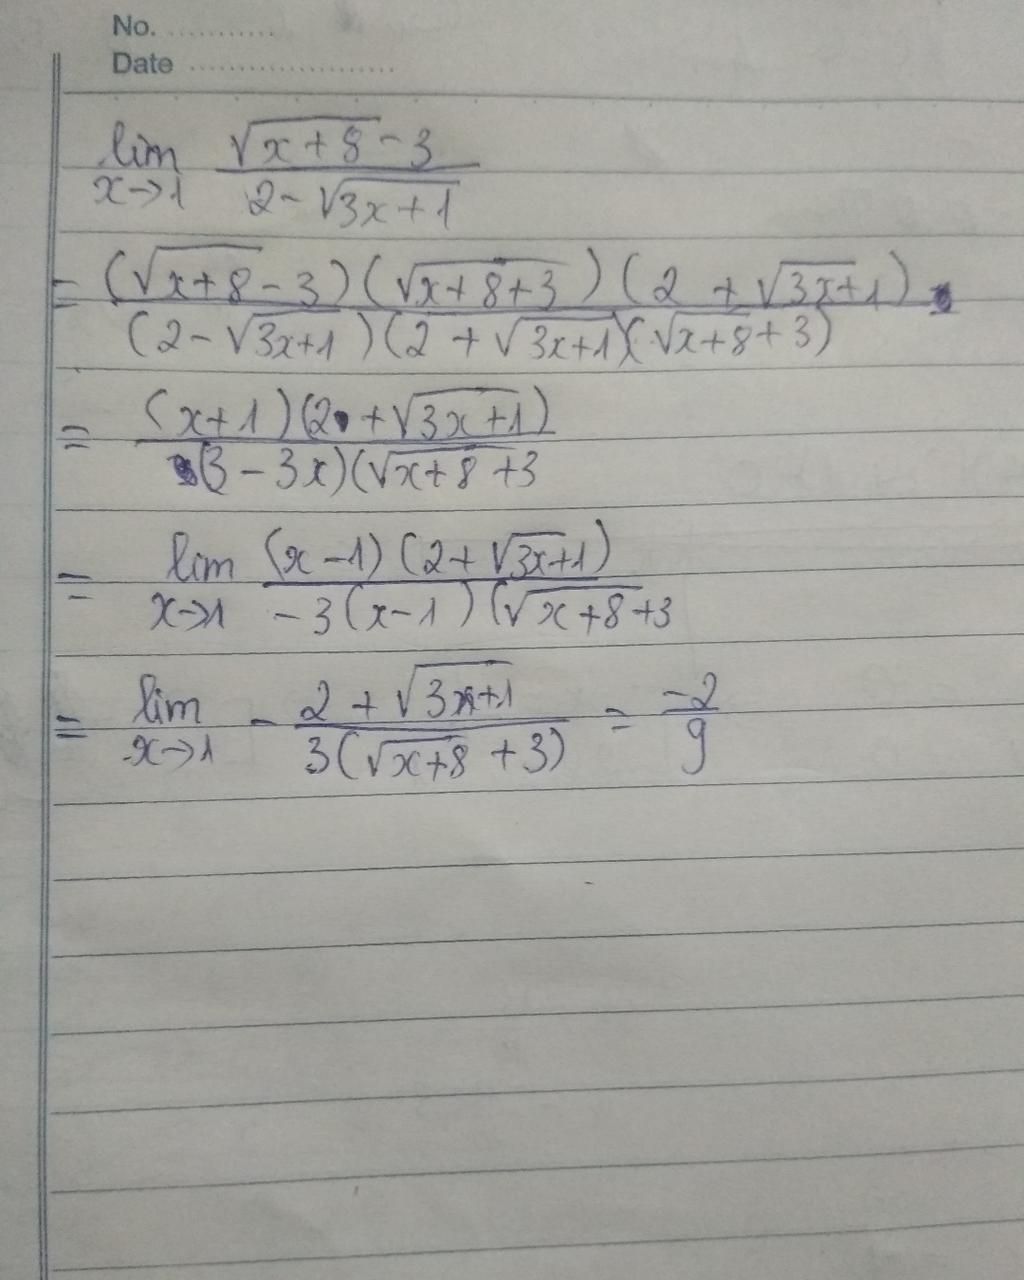 No. ............
Date ......................
lim x→1 (√(x+8) - 3) / (2 - √(3x+1))
= (√(x+8) - 3)(√(x+8+3))(2 + √(3x+1)) / (2 - √(3x+1))(2 + √(3x+1))(√(x+8) + 3)
= (x+1)(2 + √(3x+1)) / (3 - 3x)(√(x+8) + 3
= lim x→1 (x-1)(2 + √(3x+1)) / -3(x-1)(√(x+8) + 3
= lim x→1 - (2 + √(3x+1)) / 3(√(x+8) + 3) = -2/9